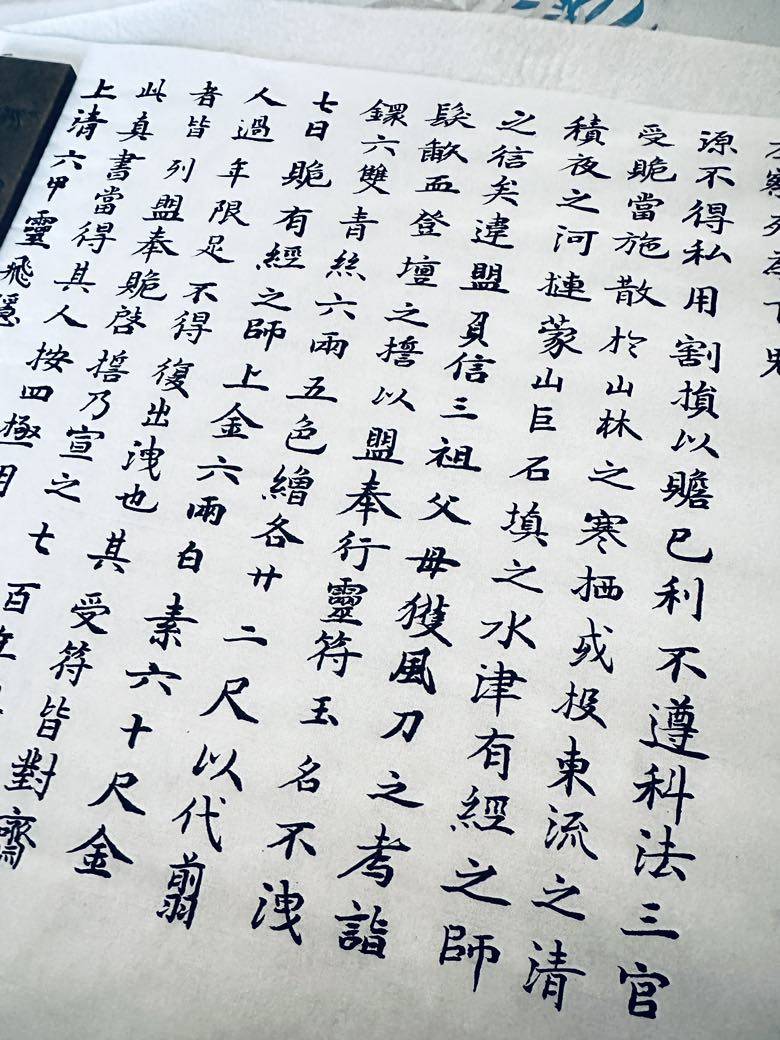 死為下鬼
源不得私用割損以贍己利不遵科法三官
受賕當施散於山林之寒栖或投東流之清
積夜之河摙蒙山巨石填之水津有經之師
之信矣違盟負信三祖父母獲風刀之考詣
髮歃血登壇之誓以盟奉行靈符玉名不洩
鐶六雙青絲六兩五色繒各廿二尺以代翦
七日賕有經之師上金六兩白素六十尺金
人過年限足不得復出洩也其受符皆對齋
者皆列盟奉賕啓誓乃宣之七百年
此真書當得其人按四極明
上清六甲靈飛隱